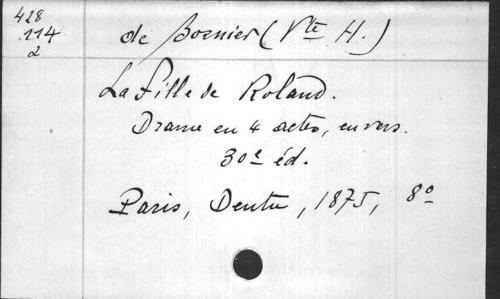 428
114
2
de Bornier (Vte H.)
La Fille de Roland.
Drame en 4 actes, en vers.
30e éd.
Paris, Dentu, 1875, 8o